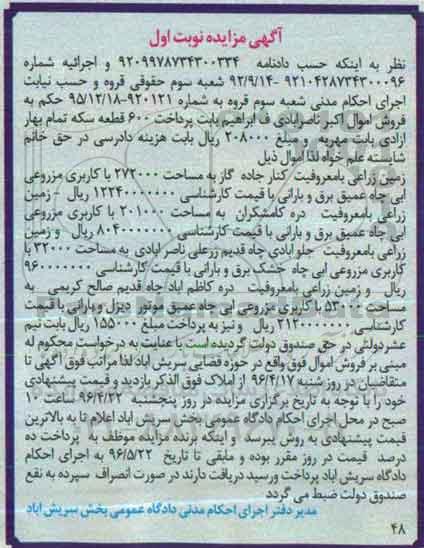 آگهی مزایده نوبت اول
نظر به اینکه حسب دادنامه ۹۲۰۹۹۷۸۷۳۴۳۰۰۳۳۴ و اجرائیه شماره
۹۲۱۰۴۲۸۷۳۴۳۰۰۰۹۶ -۹۲/۹/۱۴ شعبه سوم حقوقی قروه و حسب نیابت
اجرای احکام مدنی شعبه سوم قروه به شماره ۹۲۰۱۲۱-۹۵/۱۲/۱۸ حکم به
فروش اموال اکبر ناصرابادی ف ابراهیم بابت پرداخت ۶۰۰ قطعه سکه تمام بهار
ازادی بابت مهریه و مبلغ ۲۰۸۰۰۰ ریال بابت هزینه دادرسی در حق خانم
شایسته علم خواه لذا اموال ذیل
زمین زراعی بامعروفیت کنار جاده گاز به مساحت ۲۷۲۰۰۰ با کاربری مزروعی
ابی چاه عمیق برق و بارانی با قیمت کارشناسی ۱۲۲۴۰۰۰۰۰۰۰ ریال - زمین
زراعی بامعروفیت دره کامشگران به مساحت ۲۰۱۰۰۰ با کاربری مزروعی
ابی چاه عمیق برق و بارانی با قیمت کارشناسی ۸۰۴۰۰۰۰۰۰۰ ریال و زمین
زراعی بامعروفیت جلو ابادی چاه قدیم زرعلی ناصر ابادی به مساحت ۳۲۰۰۰ با
کاربری مزروعی ابی چاه خشک برق و بارانی با قیمت کارشناسی ۹۶۰۰۰۰۰۰۰
ریال و زمین زراعی بامعروفیت دره کاظم اباد چاه قدیم صالح کریمی به
مساحت ۵۳۰۰۰ با کاربری مزروعی ابی چاه عمیق موتور دیزل و بارانی با قیمت
کارشناسی ۲۱۲۰۰۰۰۰۰۰ ریال و نیز به پرداخت مبلغ ۱۵۵۰۰۰ ریال بابت نیم
عشر دولتی در حق صندوق دولت گردیده است با عنایت به درخواست محکوم له
مبنی بر فروش اموال فوق واقع در حوزه قضایی سریش اباد لذا مراتب فوق آگهی تا
متقاضیان در روز شنبه ۹۶/۴/۱۷ از املاک فوق الذکر بازدید و قیمت پیشنهادی
خود را با توجه به تاریخ برگزاری مزایده در روز پنجشنبه ۹۶/۴/۲۲ ساعت ۱۰
صبح در محل اجرای احکام دادگاه عمومی بخش سریش اباد اعلام تا به بالاترین
قیمت پیشنهادی به روش پیرسد و اینکه برنده مزایده موظف به پرداخت ده
درصد قیمت در روز مقرر بوده و مابقی تا تاریخ ۹۶/۵/۲۲ به اجرای احکام
دادگاه سریش اباد پرداخت ورسید دریافت دارند در صورت انصراف سپرده به نفع
صندوق دولت ضبط می گردد
مدیر دفتر اجرای احکام مدنی دادگاه عمومی بخش سریش اباد
۴۸